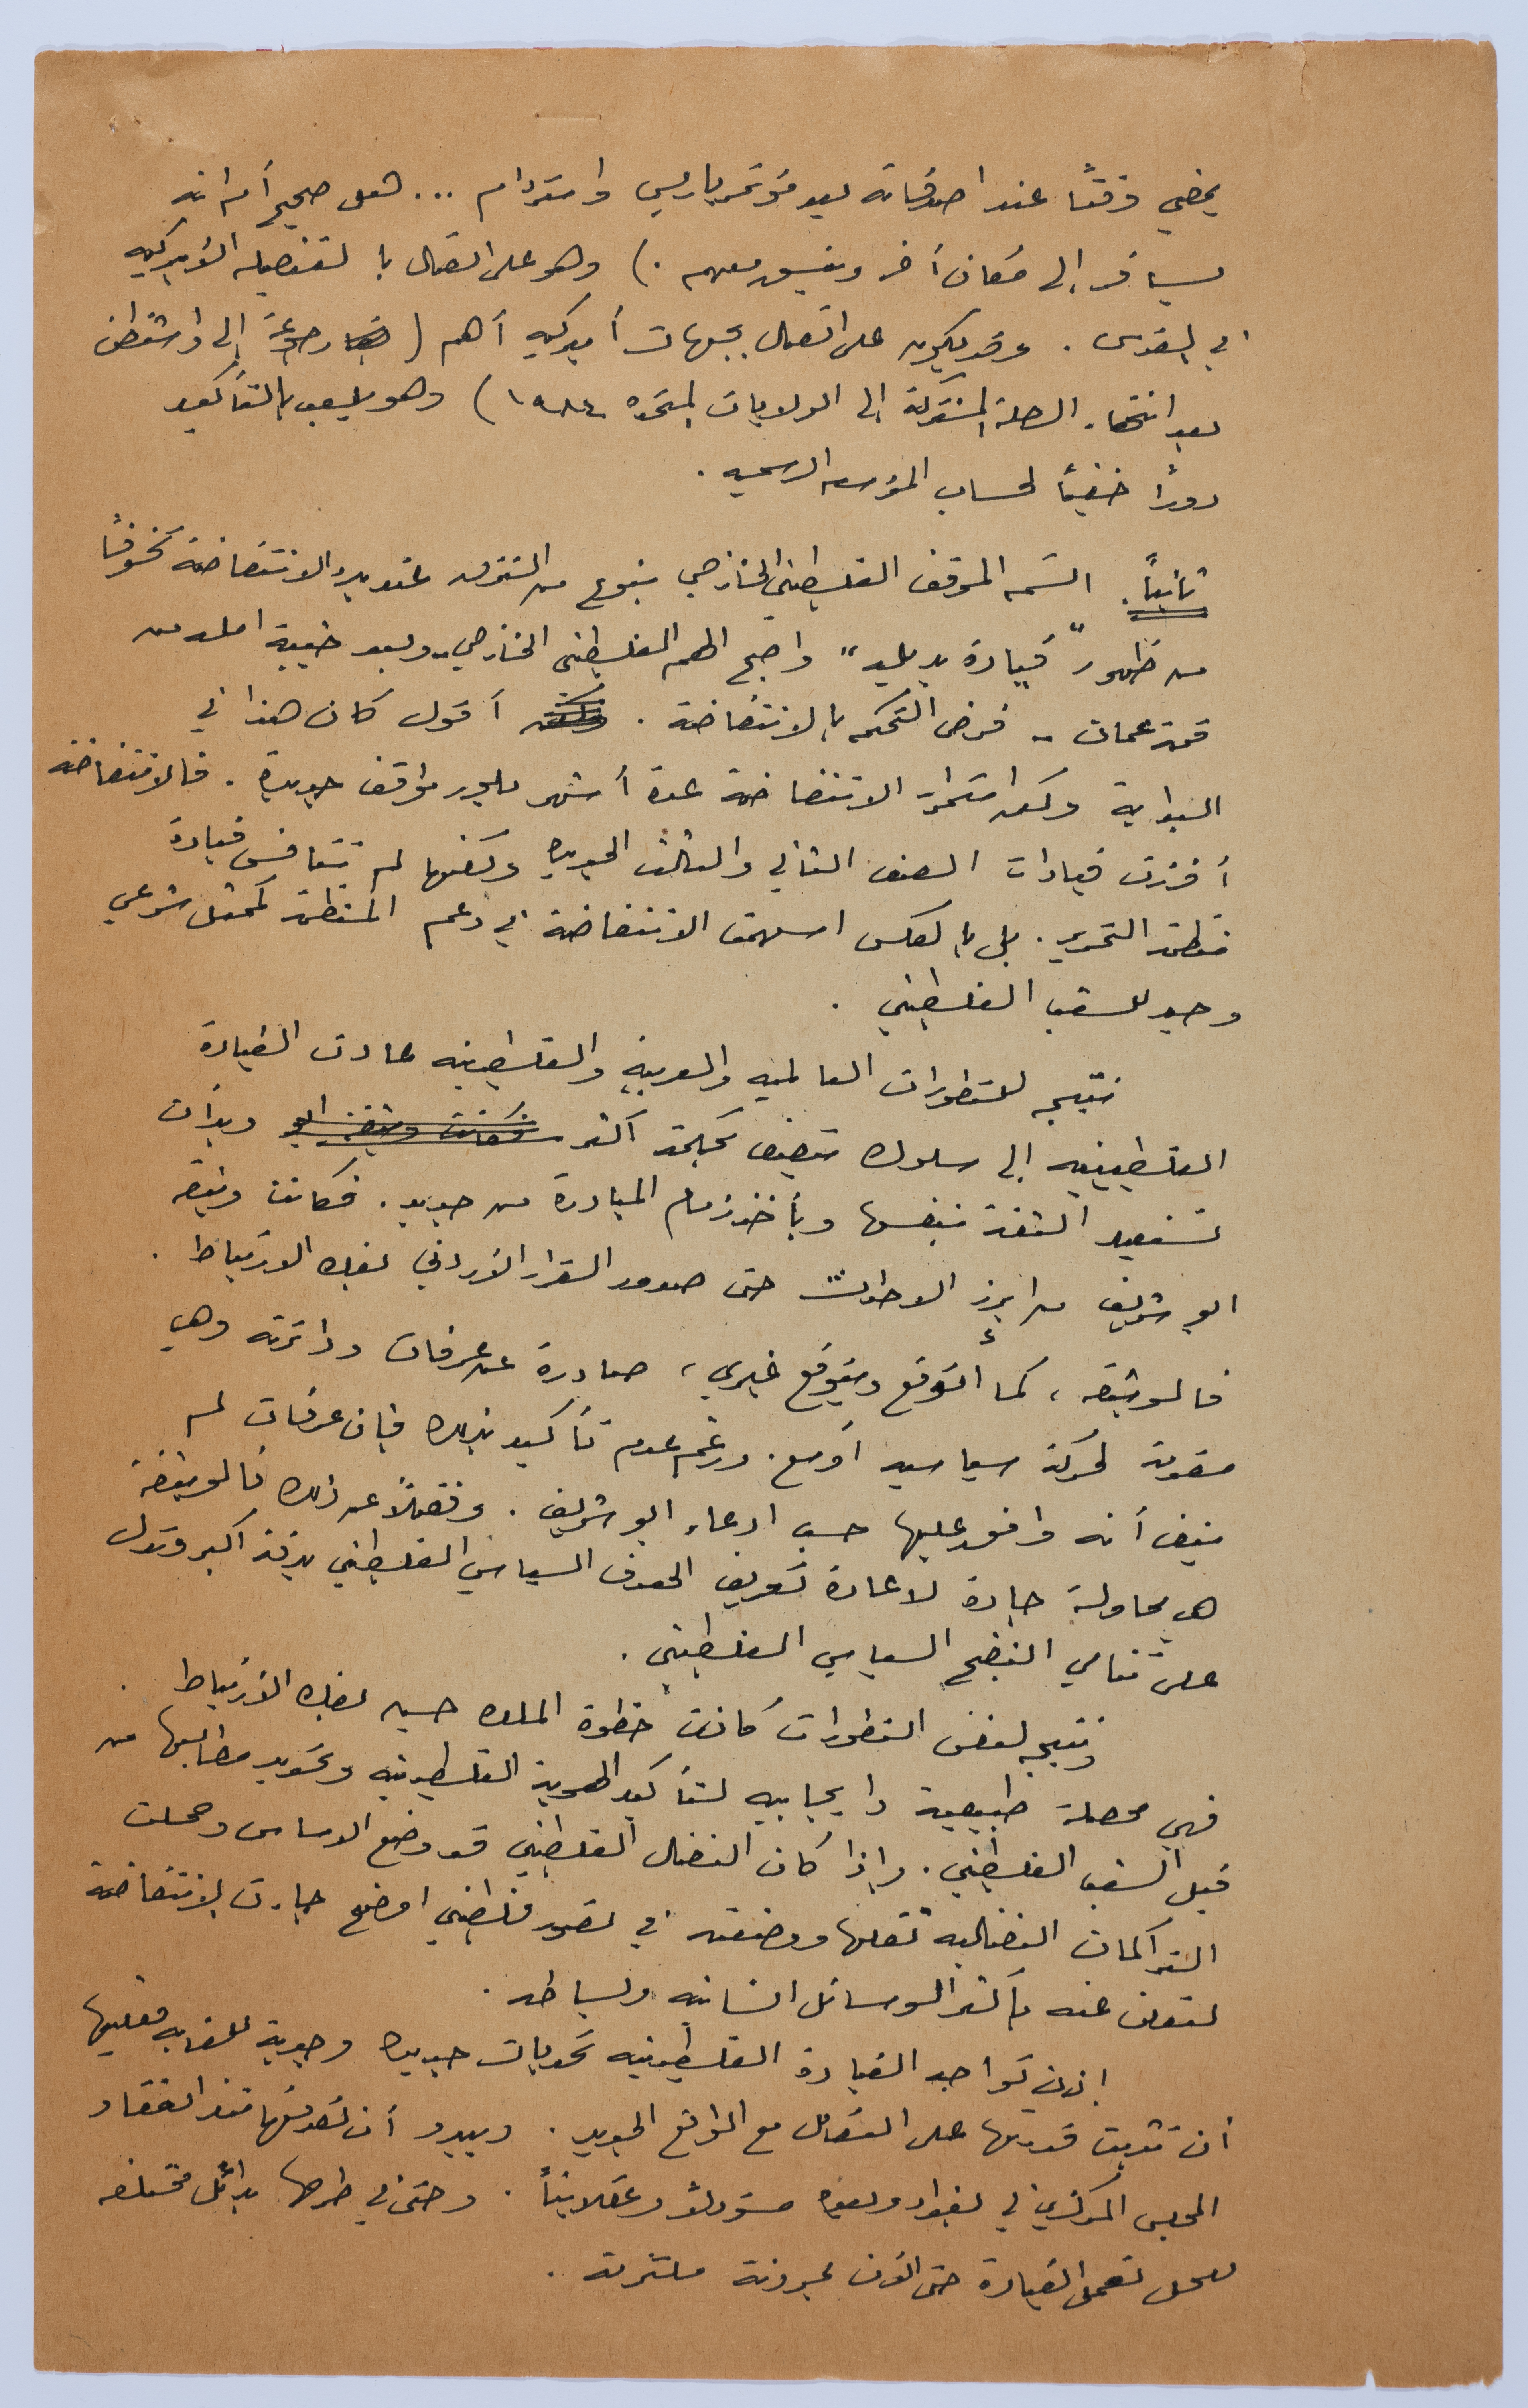 يمضي وقتاً عند اصدقائه بعد مؤتمر باريس وامستردام ... فهل صحيح أم انه
يسافر إلى مكان آخر وينسق معهم .) وهو على اتصال بالقنصليه الأميركيه
في القدس . وقد يكون على اتصال بجهات أميركيه أهم ( رجوعه إلى واشنطن
بعد انتهاء الرحلة المشتركة إلى الولايات المتحده ١٩٨٤) وهو يلعب بالتأكيد
دوراً خفياً لحساب المؤسسه الرسميه .
ثانياً . اتسم الموقف الفلسطيني الخارجي بنوع من النزق عند بدء الانتفاضة تخوفاً
من ظهور "قيادة بديله" واصبح الهم الفلسطيني الخارجي - وبعد خيبة امله من
قمة عمان - فرض التحكم بالانتفاضة . أقول كان هذا في
البداية ولكن استمرار الانتفاضة عدة أشهر بلور مواقف جديدة . فالانتفاضة
أفرزت قيادات الصف الثاني والثالث الجديده ولكنها لم تنافس قيادة
منظمة التحرير . بل بالعكس اسهمت الانتفاضة في دعم المنظمة كممثل شرعي
وحيد للشعب الفلسطيني .
نتيجه للتطورات العالميه والعربيه والفلسطينيه عادت القيادة
الفلسطينيه إلى سلوك يتصف بحكمة أكثر فكانت وثيقة ابو وبدأت
تستعيد الثقة بنفسها وبأخذ زمام المبادرة من جديد . فكانت وثيقه
ابو شريف من ابرز الاحداث حتى صدور القرار الأردني بفك الارتباط .
فالوثيقه ، كما أتوقع ويتوقع غيري ، صادرة عن عرفات ودائرته وهي
مقدمة لحركة سياسيه أوسع . ورغم عدم تأكيد ذلك فإن عرفات لم
ينف أنه وافق عليها حسب ادعاء ابو شريف . وفضلاً عن ذلك فالوثيقة
هي محاولة جادة لاعادة تعريف الهدف السياسي الفلسطيني بدقة أكبر وتدل
على تنامي النضج السياسي الفلسطيني .
ونتيجه لنفس التطورات كانت خطوة الملك حسين بفك الأرتباط .
فهي محصلة طبيعية وايجابيه لتأكيد الهوية الفلسطينيه وتحديد مطالبها من
قبل الشعب الفلسطيني . وإذا كان النضال الفلسطيني قد وضع الاساس وحملت
التراكمات النضاليه ثقلها ووضعته في تصور فلسطيني اوضح جاءت الانتفاضة
لتعلن عنه بأكثر الوسائل انسانيه وبساطه .
إذن تواجه القيادة الفلسطينيه تحديات جديده وجديه للغايه فعليها
أن تثبت قدرتها على التعامل مع الواقع الجديد . ويبدو أن تصرفها منذ انعقاد
المجلس المركزي في بغداد وبعده مسؤولاً وعقلانياً . وحتى في طرحها بدائل مختلفه
للحل تعمل القيادة حتى الآن بمرونة ملتزمه .